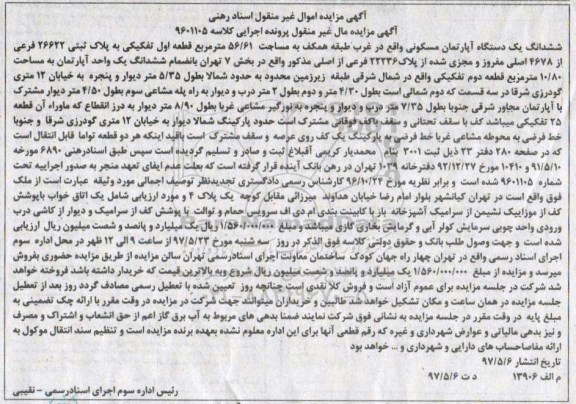 آگهی مزایده اموال غیر منقول اسناد رهنی
آگهی مزایده مال غیر منقول پرونده اجرایی کلاسه ۹۶۰۱۱۰۵
ششدانگ یک دستگاه آپارتمان مسکونی واقع در غرب طبقه همکف به مساحت ۵۶/۶۱ مترمربع قطعه اول تفکیکی به پلاک ثبتی ۲۶۶۲۲ فرعی
از ۴۶۷۸ اصلی مفروز و مجزی شده از پلاک ۲۲۲۳۶ فرعی از اصلی مذکور واقع در بخش ۷ تهران بانضمام ششدانگ یک واحد آپارتمان به مساحت
۱۰/۸۰ مترمربع قطعه دوم تفکیکی واقع در شمال شرقی طبقه زیرزمین محدود به حدود شمالا بطول ۵/۳۵ متر دیوار و پنجره به خیابان ۱۲ متری
گودرزی شرقا در سه قسمت که دوم شمالی است بطول ۴/۳۰ متر و دوم بطول ۲ متر درب و دیوار به راه پله مشاعی سوم بطول ۴/۵۰ متر دیوار مشترک
با آپارتمان مجاور شرقی جنوبا بطول ۷/۳۵ متر درب و دیوار و پنجره به نورگیر مشاعی غربا بطول ۸/۹۰ متر دیوار به درز انقطاع که ماوراء آن قطعه
۲۵ تفکیکی میباشد کف با سقف تحتانی و سقف باکف فوقانی مشترک است حدود پارکینگ شمالا دیوار به خیابان ۱۲ متری گودرزی شرقا و جنوبا
خط فرضی به محوطه مشاعی غربا خط فرضی به پارکینگ یک کف روی عرصه و سقف مشترک است باقید اینکه هر دو قطعه تواما قابل انتقال است
که در صفحه ۲۸۰ دفتر ۲۳ ذیل ثبت ۳۰۰۱ بنام محمدیار کریمی آقبلاغ ثبت و صادر و تسلیم گردیده است سپس طبق اسنادرهنی ۶۸۹۰ مورخه
۹۱/۵/۱۰ و ۱۰۴۱۰ مورخ ۹۲/۱۲/۲۷ دفترخانه ۱۰۳۹ تهران در رهن بانک آینده قرار گرفته است که بعلت عدم ایفای تعهد منجر به صدور اجراییه تحت
شماره ۹۶۰۱۱۰۵ شده است و برابر نظریه مورخ ۹۶/۱۰/۲۴ کارشناس رسمی دادگستری تجدیدنظر توصیف اجمالی مورد وثیقه عبارت است از ملک
فوق واقع است در تهران کیانشهر بلوار امام رضا خیابان هداوند میرزائی مقابل کوچه یک پلاک ۴ و مورد ارزیابی شامل یک اتاق خواب باپوشش
کف از موزاییک نشیمن از سرامیک آشپزخانه باز با کابینت بندی ام دی اف سرویس حمام و توالت با پوشش کف از سرامیک و دیوار از کاشی درب
ورودی واحد چوبی سرمایش کولر آبی و گرمایش بخاری گازی میباشد و مبلغ ۱/۵۶۰/۰۰۰/۰۰۰ ریال یک میلیارد و پانصد و شصت میلیون ریال ارزیابی
شده است و جهت وصول طلب بانک و حقوق دولتی کلاسه فوق الذکر در روز سه شنبه مورخ ۹۷/۵/۲۳ از ساعت ۹ الی ۱۲ ظهر در محل اداره سوم
اجرای اسناد رسمی واقع در تهران چهار راه جهان کودک ساختمان معاونت اجرای اسنادرسمی تهران سالن مزایده از طریق مزایده حضوری بفروش
میرسد و مزایده از مبلغ ۱/۵۶۰/۰۰۰/۰۰۰ یک میلیارد و پانصد و شصت میلیون ریال شروع وبه بالاترین قیمت که خریدار داشته باشد فروخته خواهد
شد شرکت در جلسه مزایده برای عموم آزاد است و فروش کلا نقدی است چنانچه روز تعیین شده با تعطیل رسمی مصادف گردد روز بعد از تعطیل
جلسه مزایده در همان ساعت و مکان تشکیل خواهد شد طالبین و خریداران میتوانند جهت شرکت در مزایده در وقت مقرر با ارائه چک تضمینی به
مبلغ پایه در وقت مقرر در جلسه مزایده به نشانی فوق شرکت نمایند ضمنا بدهی های مربوط به آب برق گاز اعم از حق انشعاب و اشتراک و مصرف
و نیز بدهی مالیاتی و عوارض شهرداری و غیره که رقم قطعی آنها برای این اداره معلوم نشده بعهده برنده مزایده است و تنظیم سند انتقال موکول به
ارائه مفاصاحساب های دارایی و شهرداری و ... خواهد بود
تاریخ انتشار ۹۷/۵/۶
م الف ۱۳۹۰۶ د ت ۹۷/۵/۶
رئیس اداره سوم اجرای اسنادرسمی - نقیبی